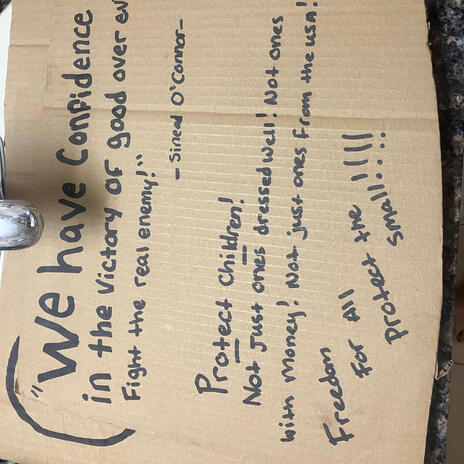 "We have Confidence
in the victory of good over ev
Fight the real enemy!"
- Sinead O'Connor-
Protect Children!
Not just ones dressed well! Not ones
with money! Not just ones from the USA!
Freedom
for All
Protect the
small!....